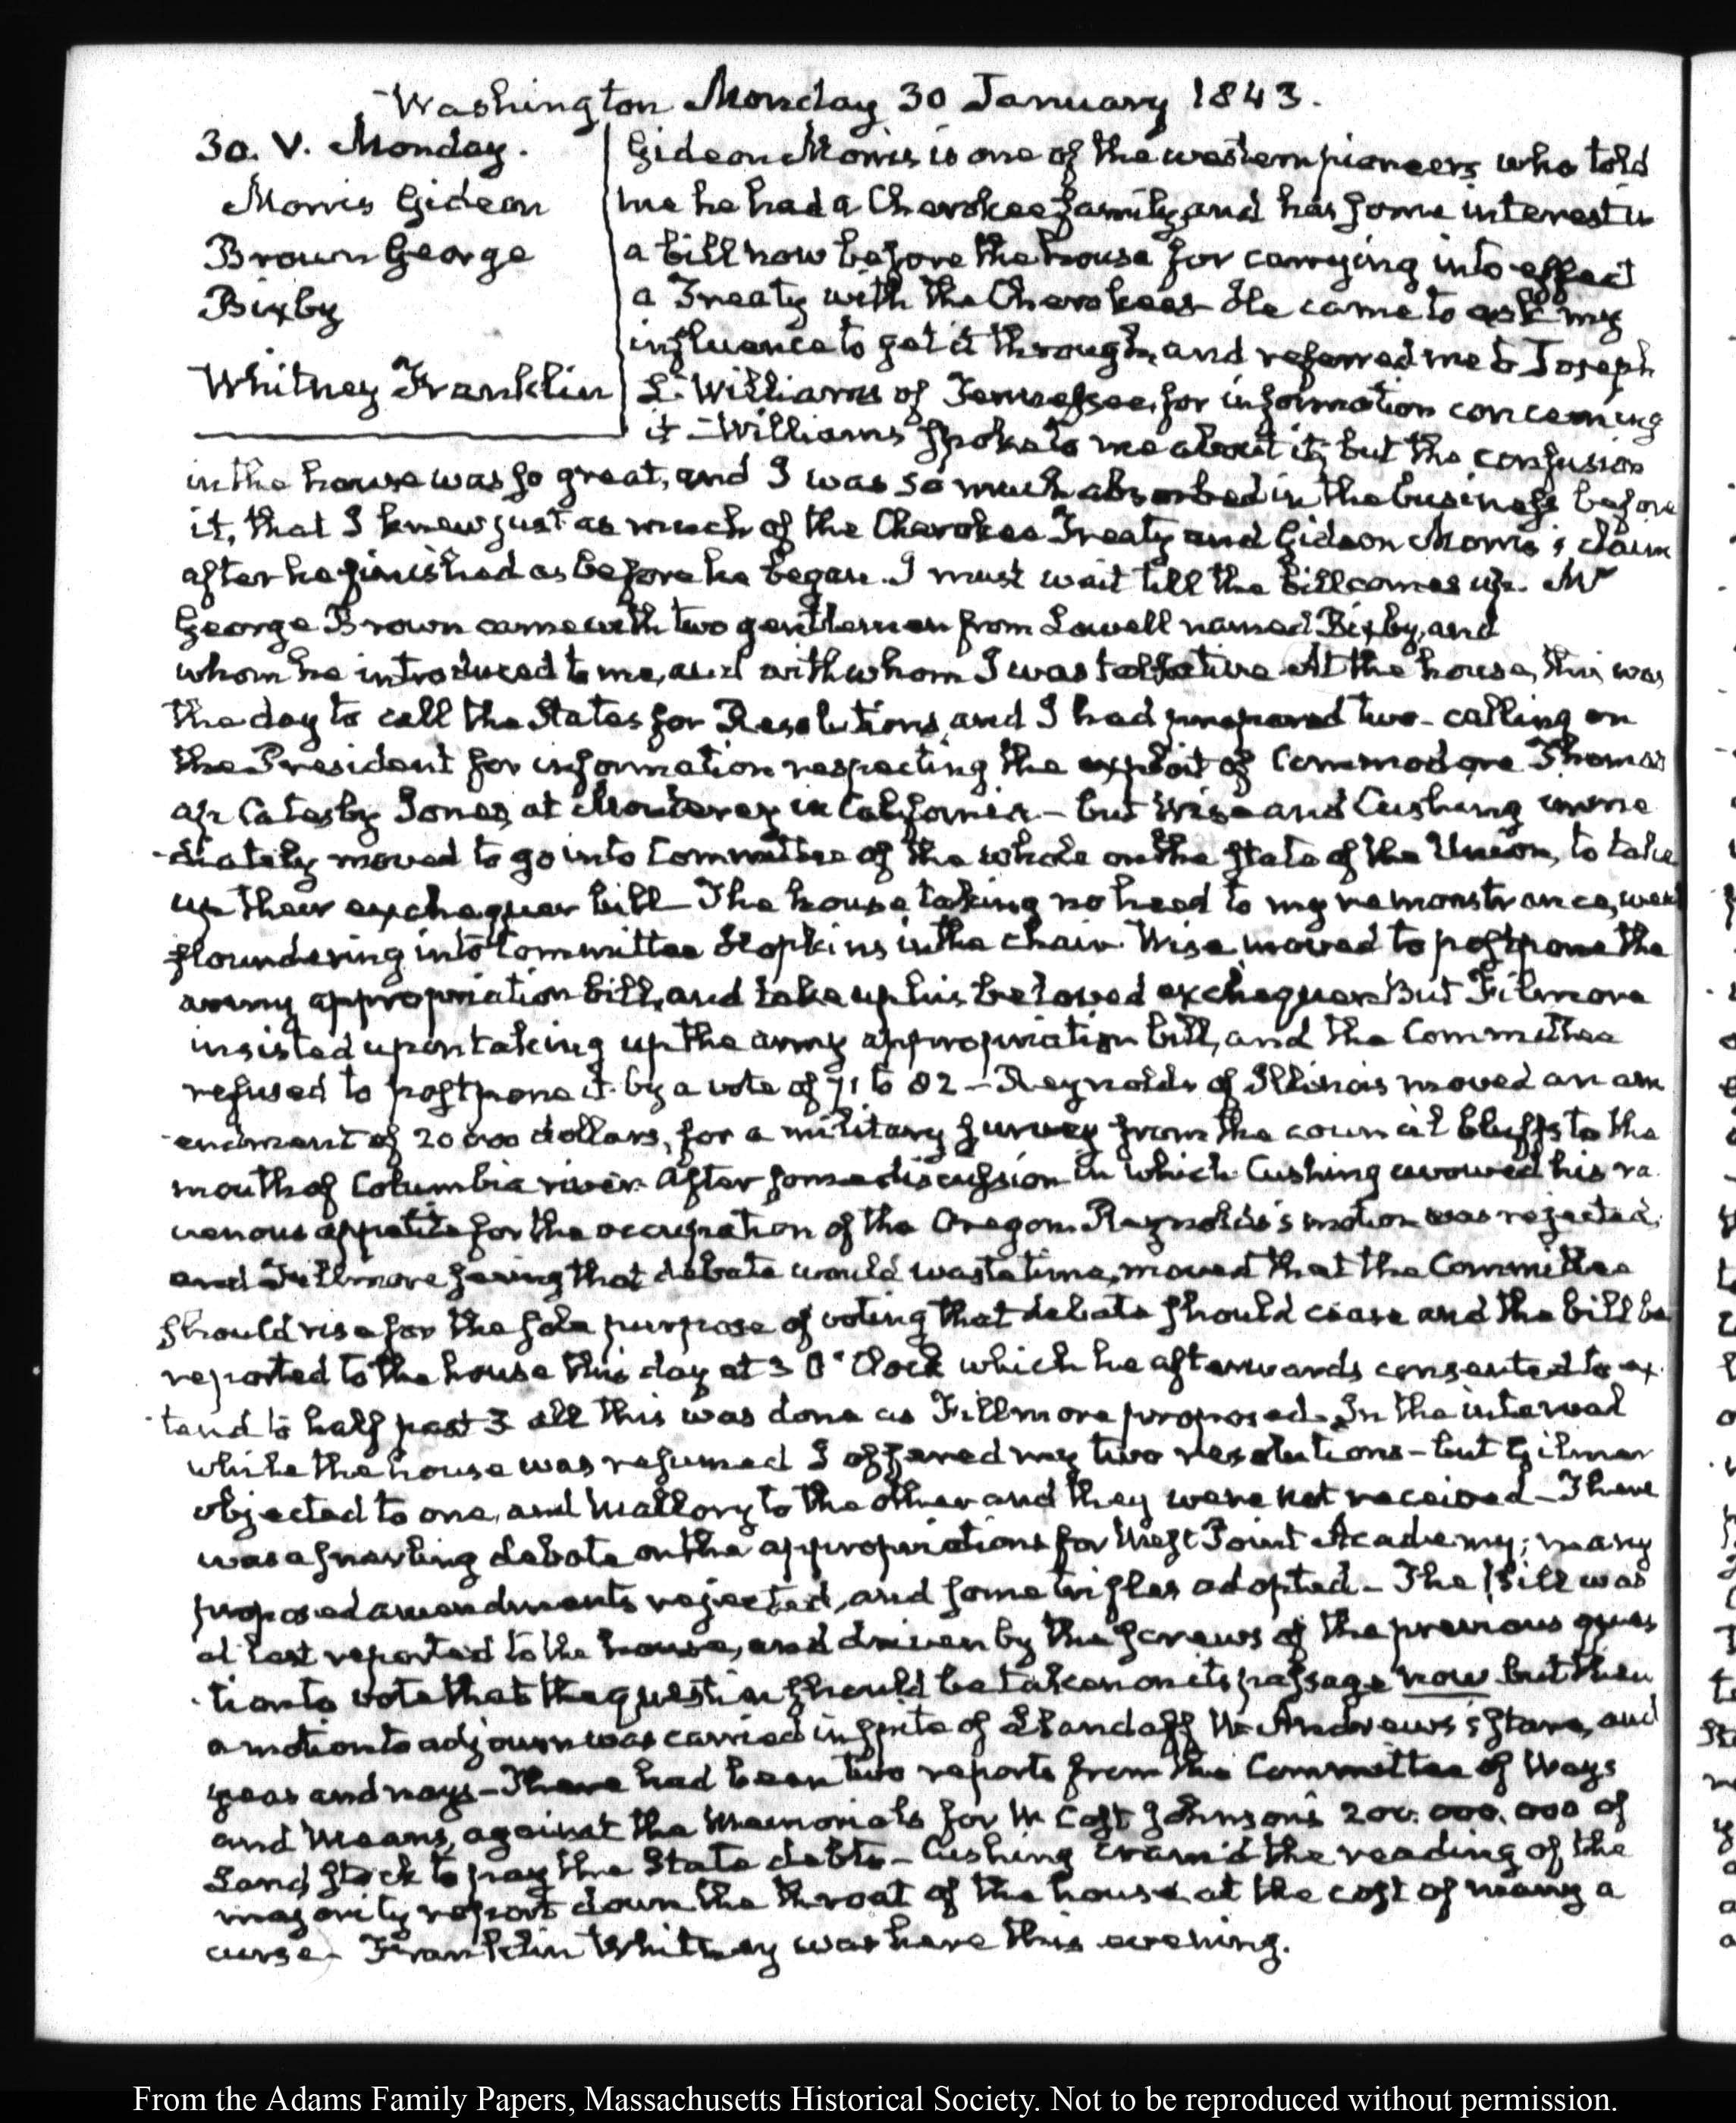 Washington Monday 30 January 1843.
30. V. Monday.
Morris Gideon
Brown George
Bixby
Whitney Franklin
Gideon Morris is one of the western pioneers who told
me he had a Cherokee family, and has some interest in
a bill now before the house for carrying into effect
a Treaty with the Cherokees He came to ask my
influence to get it through, and referred me to Joseph
L. Williams of Tennessee, for information concerning
it – Williams spoke to me about it, but the confusion
in the house was so great, and I was so much absorbed in the business before
it, that I knew just as much of the Cherokee Treaty and Gideon Morris's claim
after he finished as before he began. I must wait till the bill comes up. Mr
George Brown came with two gentlemen from Lowell named Bixby, and
whom he introduced to me, and with whom I was talkative At the house, this was
the day to call the States for Resolutions, and I had prepared two – calling on
the President for information respecting the exploit of Commodore Thomas
ap Catesby Jones, at Monterey in California – but Wise and Cushing imme
diately moved to go into Committee of the whole on the state of the Union, to take
up their exchequer bill – The house taking no heed to my remonstrance, went
floundering into Committee Hopkins in the chair. Wise moved to postpone the
army appropriation bill, and take up his beloved exchequer But Filmore
insisted upon taking up the army appropriation bill, and the Committee
refused to postpone it by a vote of 71 to 82 – Reynolds of Illinois moved an am
endment of 20 000 dollars, for a military survey from the council bluffs to the
mouth of Columbia river. After some discussion in which Cushing avowed his ra
venous appetite for the occupation of the Oregon. Reynolds's motion was rejected,
and Fillmore seeing that debate would waste time, moved that the Committee
should rise for the sole purpose of voting that debate should cease and the bill be
reported to the house this day at 3 O'Clock which he afterwards consented to ex
tend to half past 3 all this was done as Fillmore proposed. In the interval
while the house was resumed I offered my two resolutions – but Gilmer
objected to one, and Mallory to the other and they were not received – There
was a snarling debate on the appropriations for West Point Academy; many
proposed amendments rejected, and some trifles adopted – The bill was
at last reported to the house, and driven by the screws of the previous ques
tion to vote that the question should be taken on its passage now but then
a motion to adjourn was carried in spite of Landaff W. Andrews's stare, and
yeas and nays – There had been two reports from the Committee of Ways
and Means, against the Memorials for W Cost Johnson's 200.000.000 of
Land stock to pay the State debts – Cushing cramm'd the reading of the
majority report down the throat of the house at the cost of many a
curse – Franklin Whitney was here this evening.
From the Adams Family Papers, Massachusetts Historical Society. Not to be reproduced without permission.